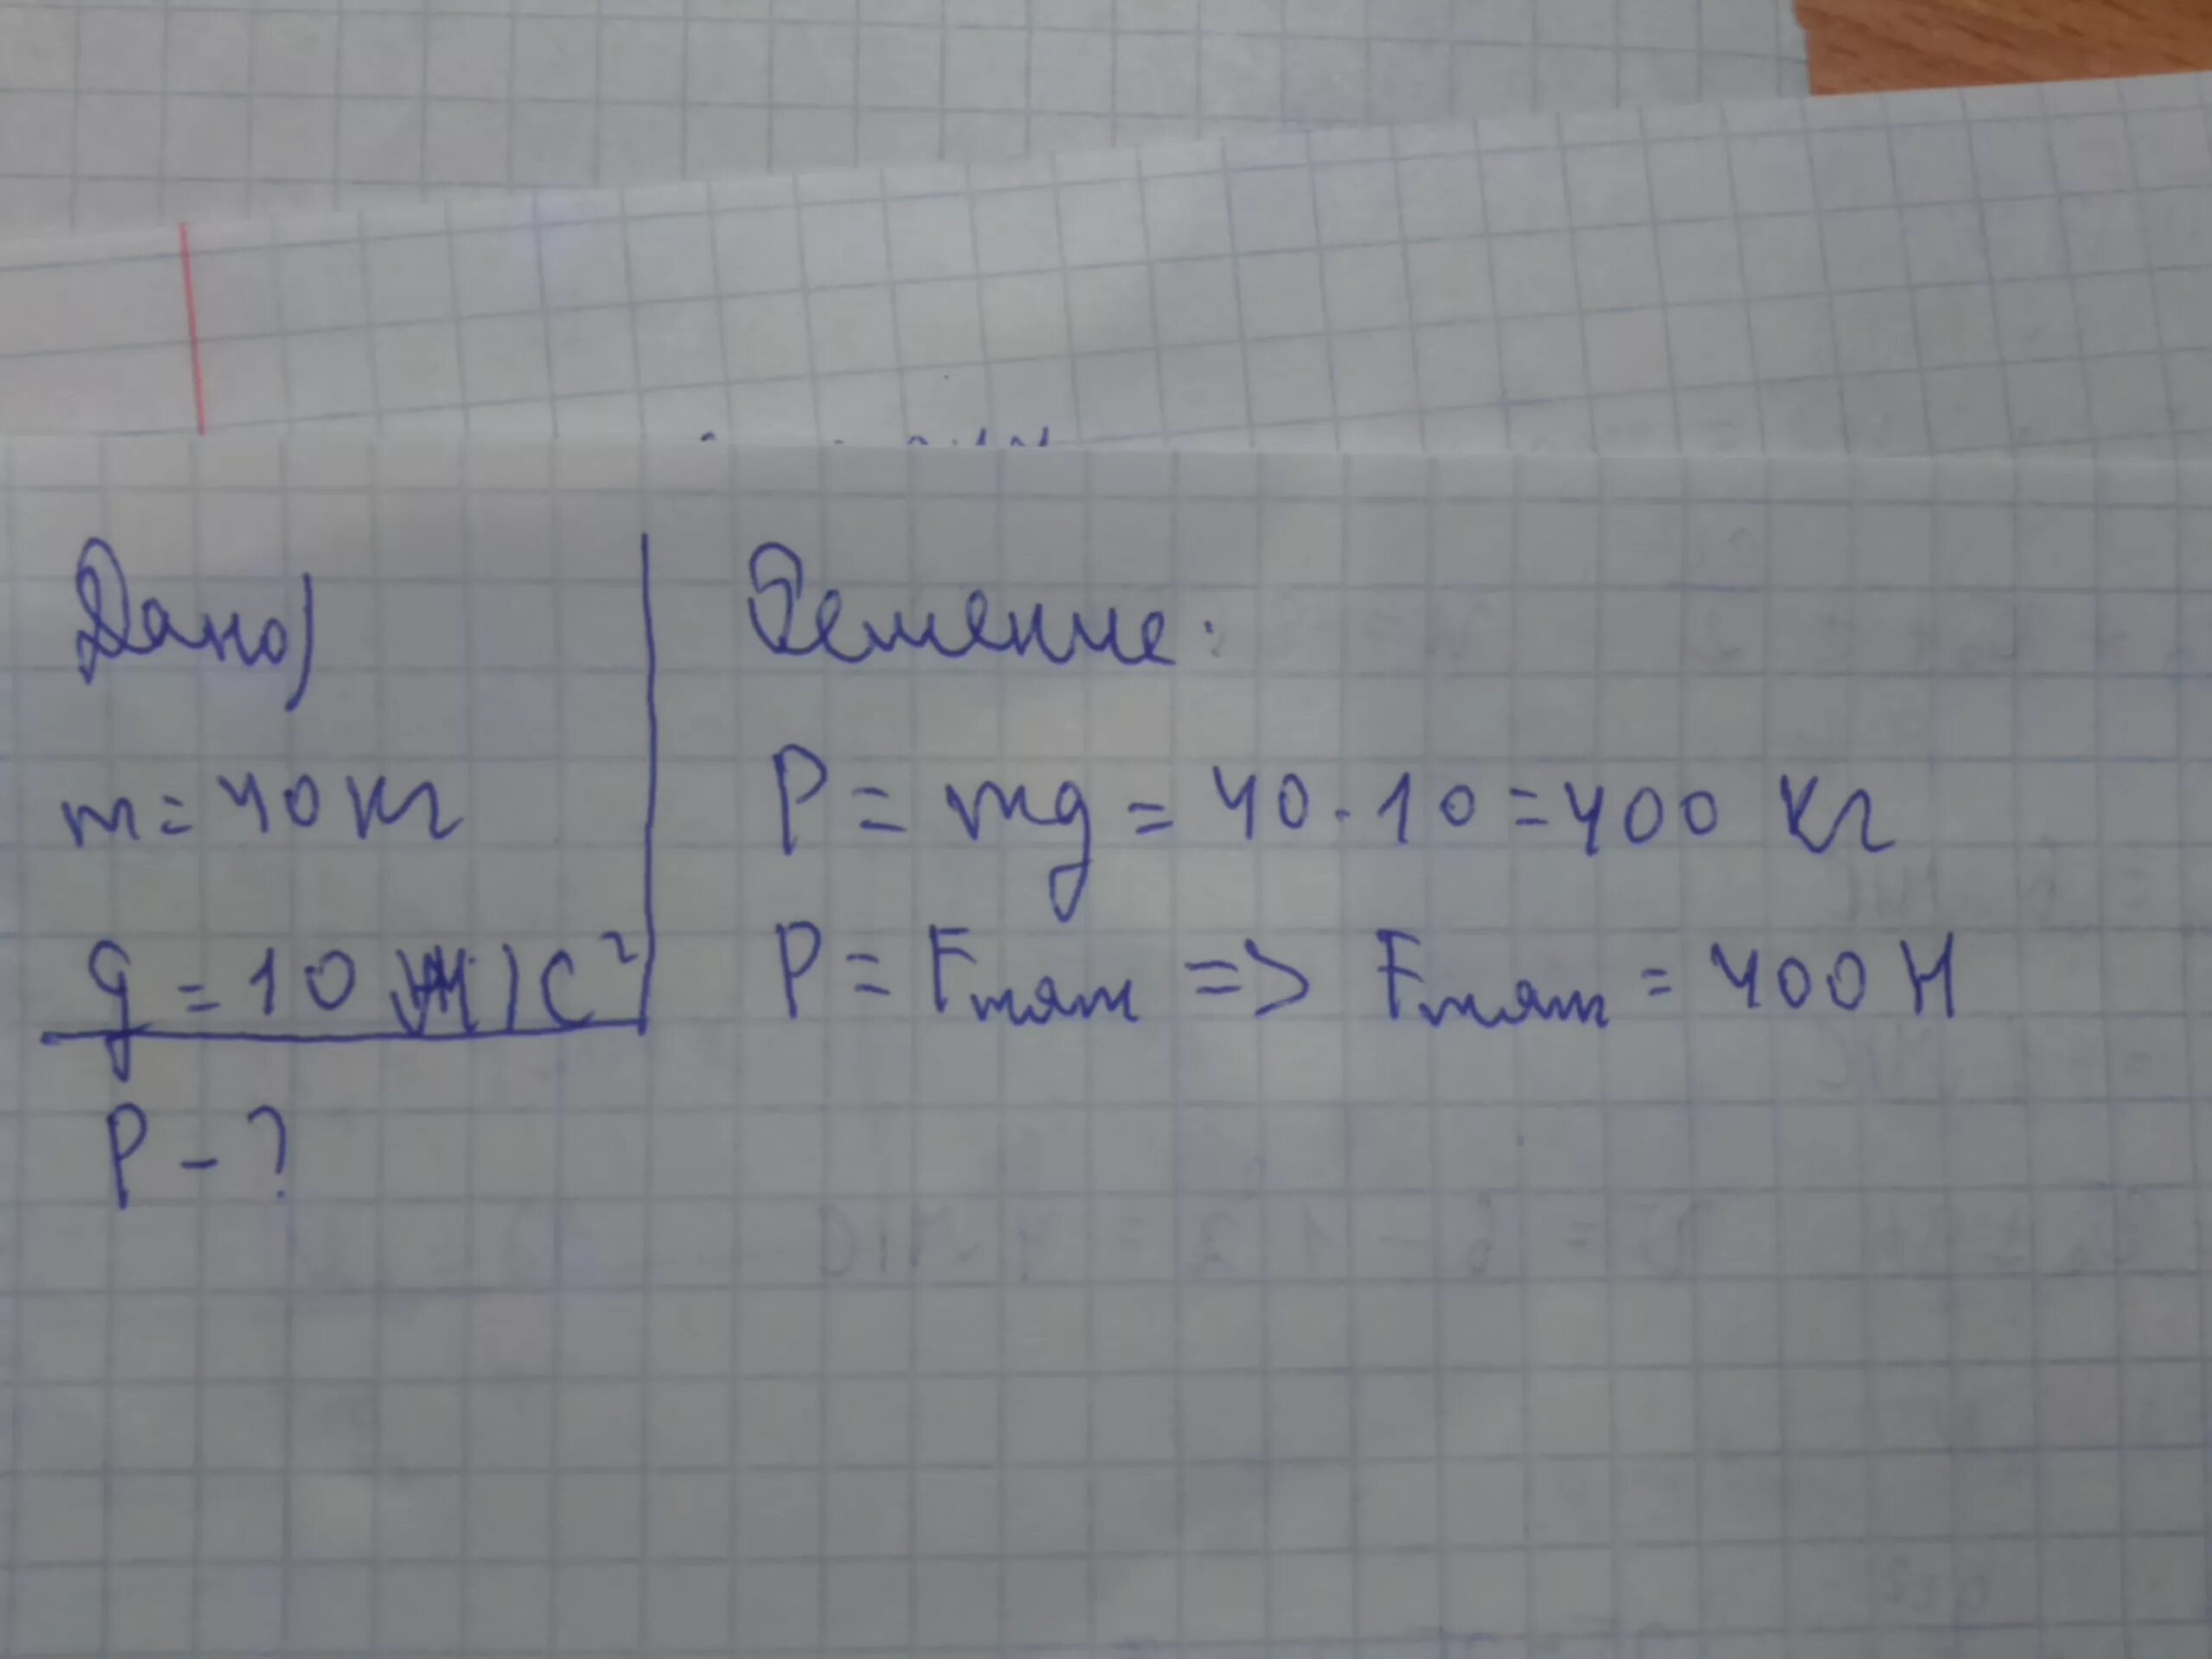 Дано)
m = 40 кг
g = 10 м/с²
P - ?
Решение:
P = mg = 40 · 10 = 400 кг
P = Fтяж => Fтяж = 400 Н